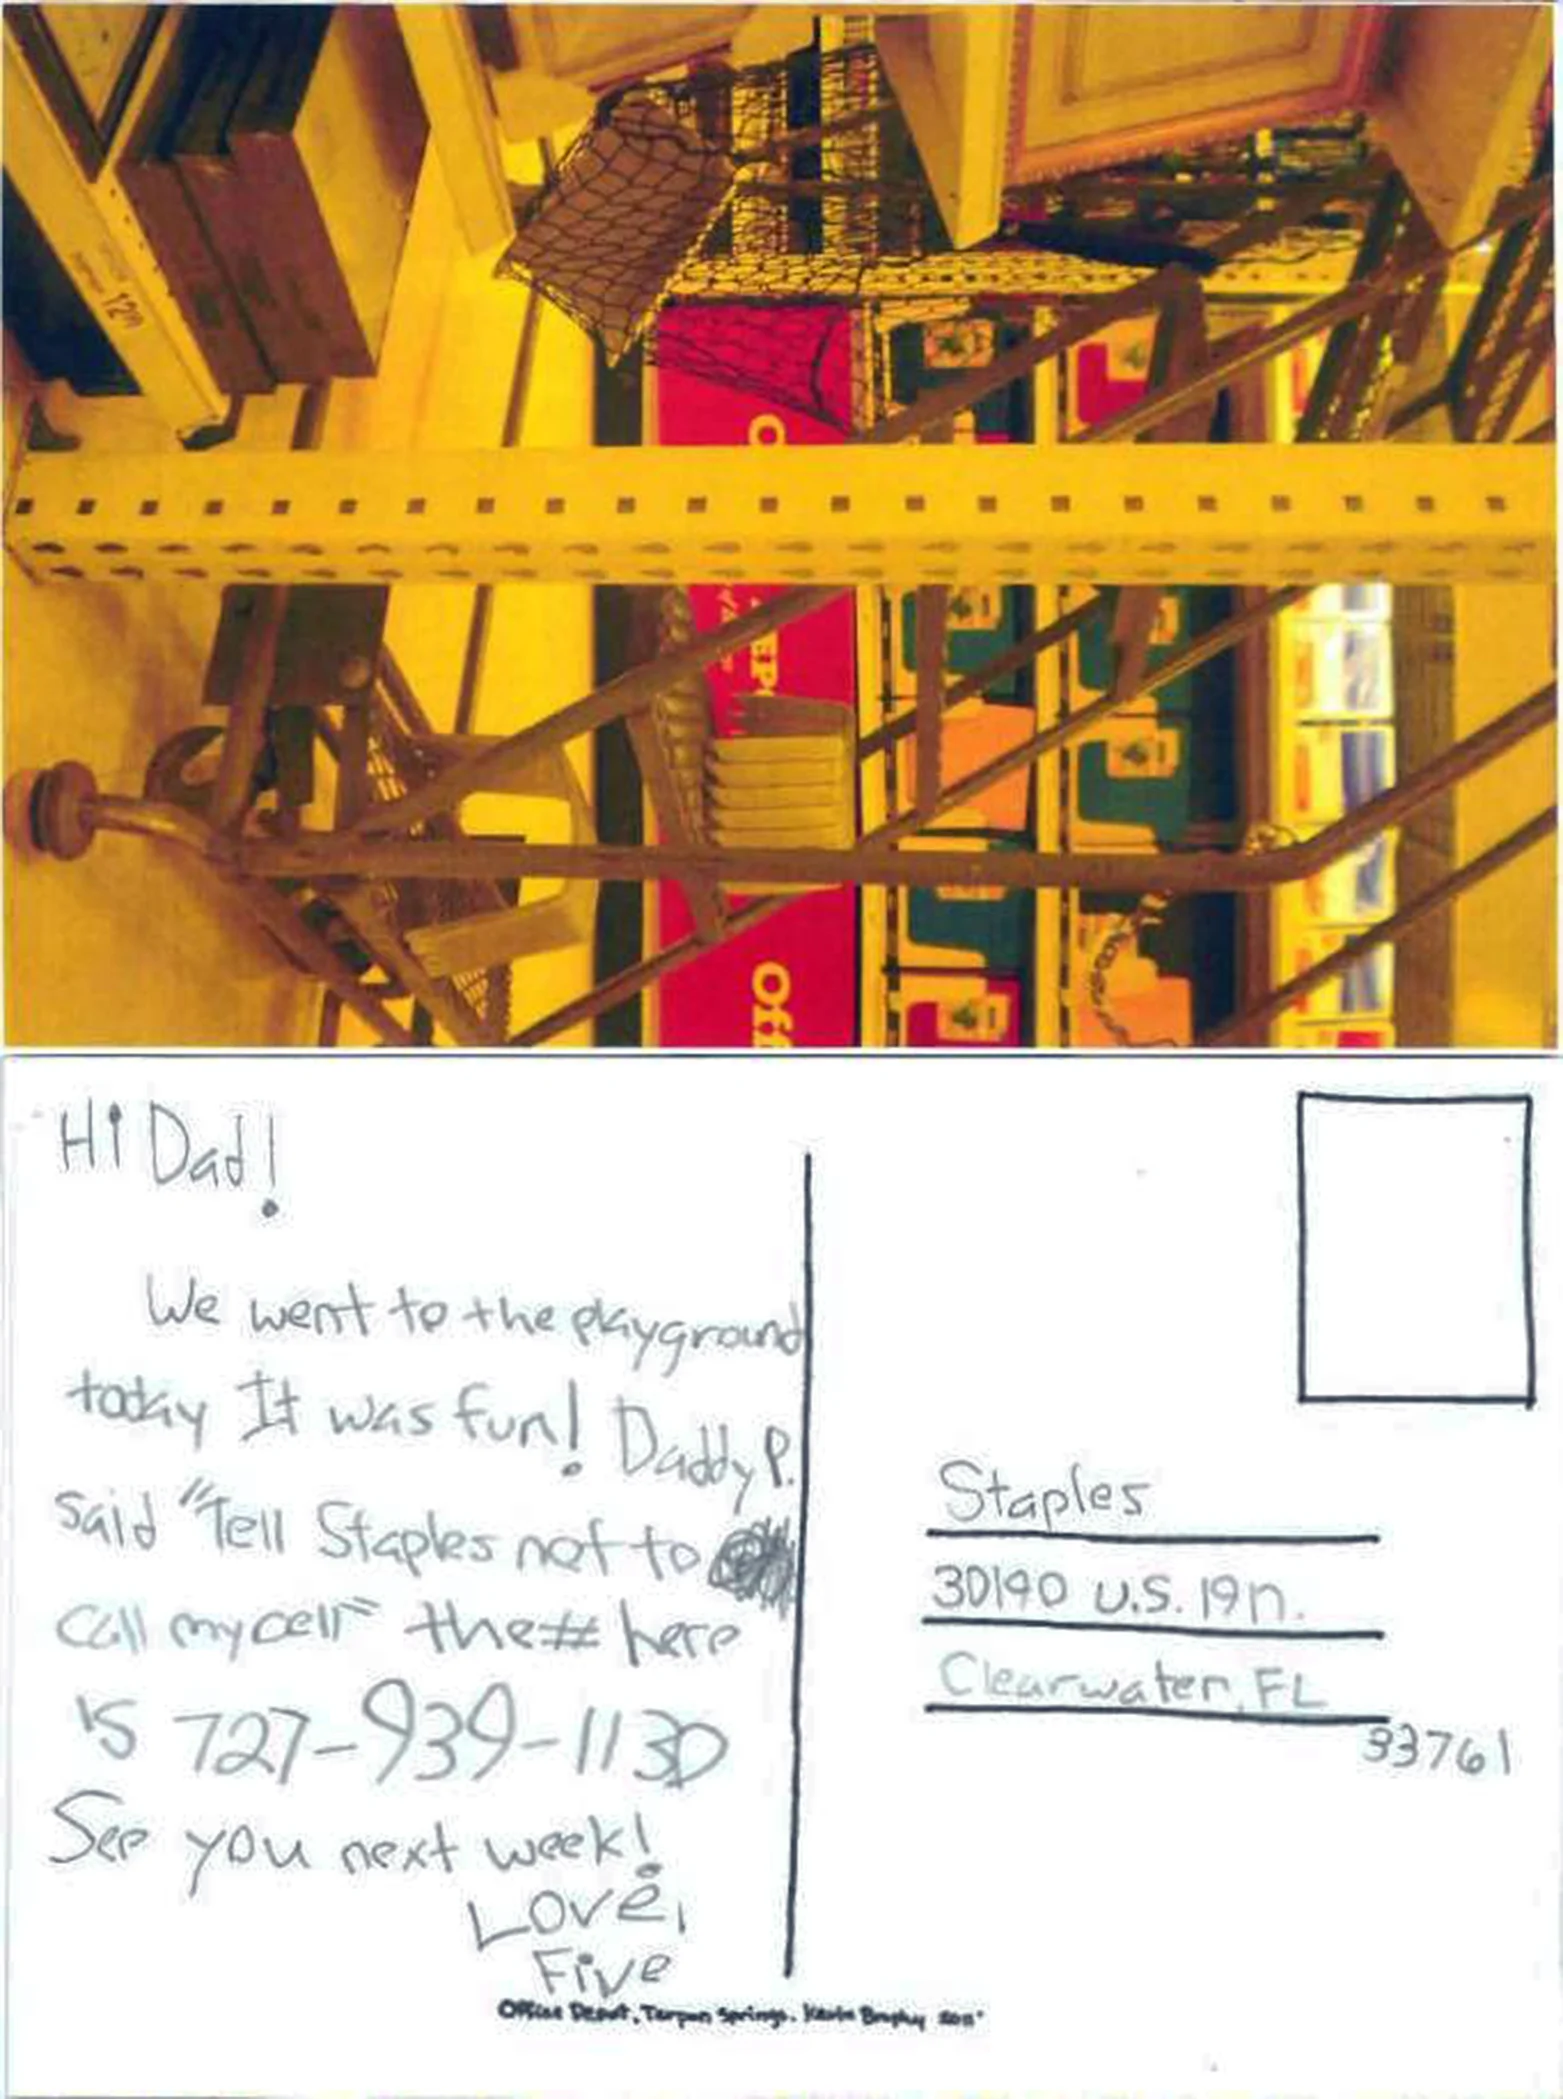 1299
Off
Hi Dad!
We went to the playground
today It was fun! Daddy P.
said "Tell Staples not to
call my cell" the # here
is 727-939-1130
See you next week!
Love,
Five
Staples
30190 U.S. 19 n.
Clearwater, FL
33761
Office Depot, Tarpon Springs. Kevin Brophy 2011